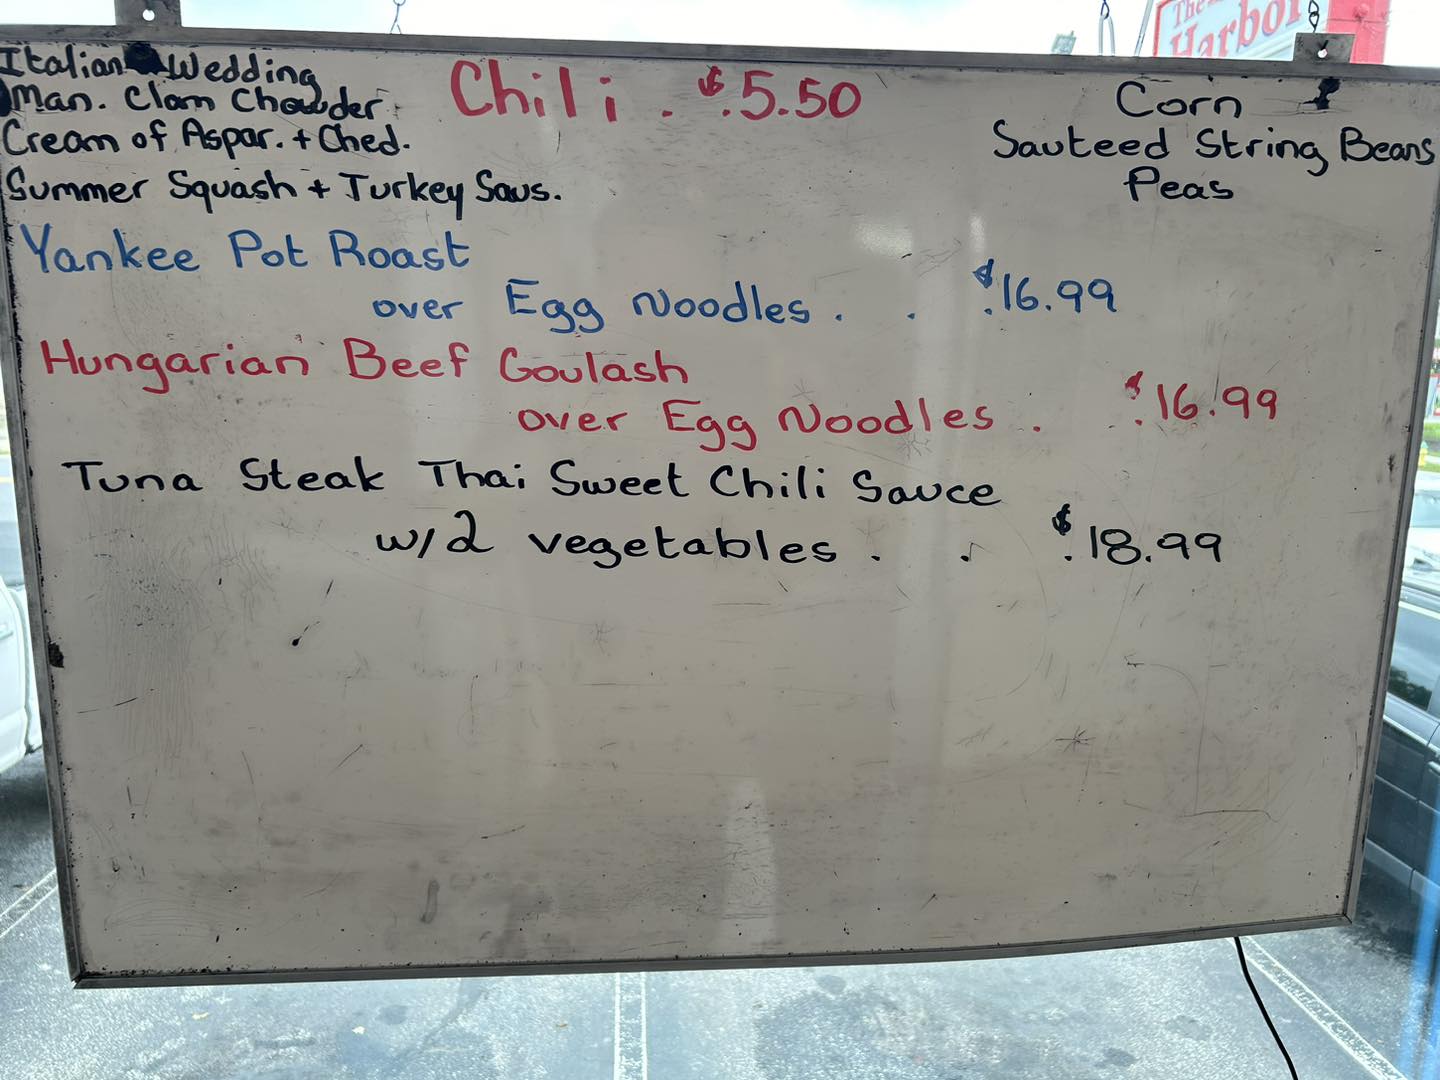 The
Harbor
Italian Wedding
Man. Clam Chowder
Cream of Aspar. + Ched.
Summer Squash + Turkey Saus.
Chili . . $5.50
Corn
Sauteed String Beans
Peas
Yankee Pot Roast
over Egg Noodles . . . $16.99
Hungarian Beef Goulash
over Egg Noodles . . $16.99
Tuna Steak Thai Sweet Chili Sauce
w/2 vegetables . . . $18.99